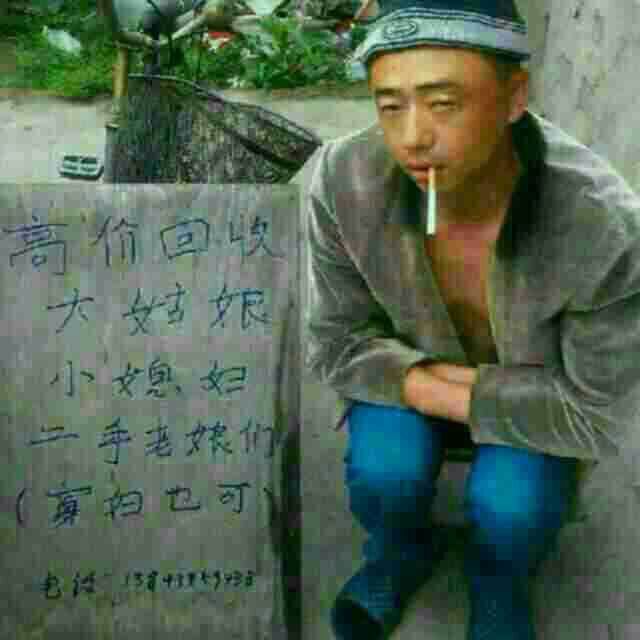 高价回收
大姑娘
小媳妇
二手老娘们
(寡妇也可)
电话